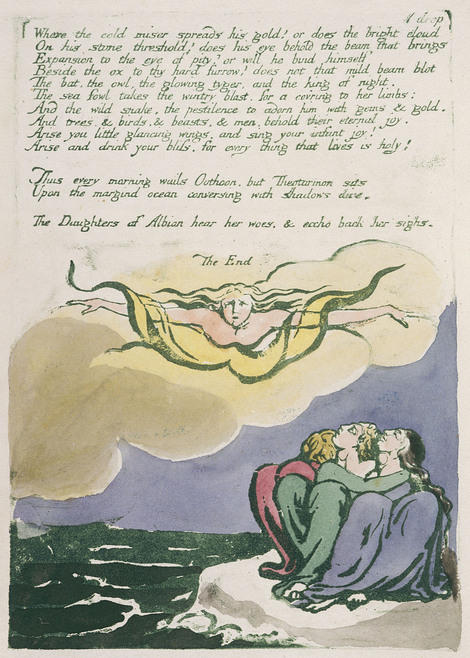 A drop
Where the cold miser spreads his gold? or does the bright cloud
On his stone threshold? does his eye behold the beam that brings
Expansion to the eye of pity? or will he bind himself
Beside the ox to thy hard furrow? does not that mild beam blot
The bat, the owl, the glowing tyger, and the king of night.
The sea fowl takes the wintry blast. for a cov'ring to her limbs:
And the wild snake, the pestilence to adorn him with gems & gold.
And trees, & birds, & beasts, & men, behold their eternal joy.
Arise you little glancing wings, and sing your infant joy!
Arise and drink your bliss, for every thing that lives is holy!
Thus every morning wails Oothoon, but Theotormon sits
Upon the margind ocean conversing with shadows dire.
The Daughters of Albion hear her woes, & eccho back her sighs.
The End